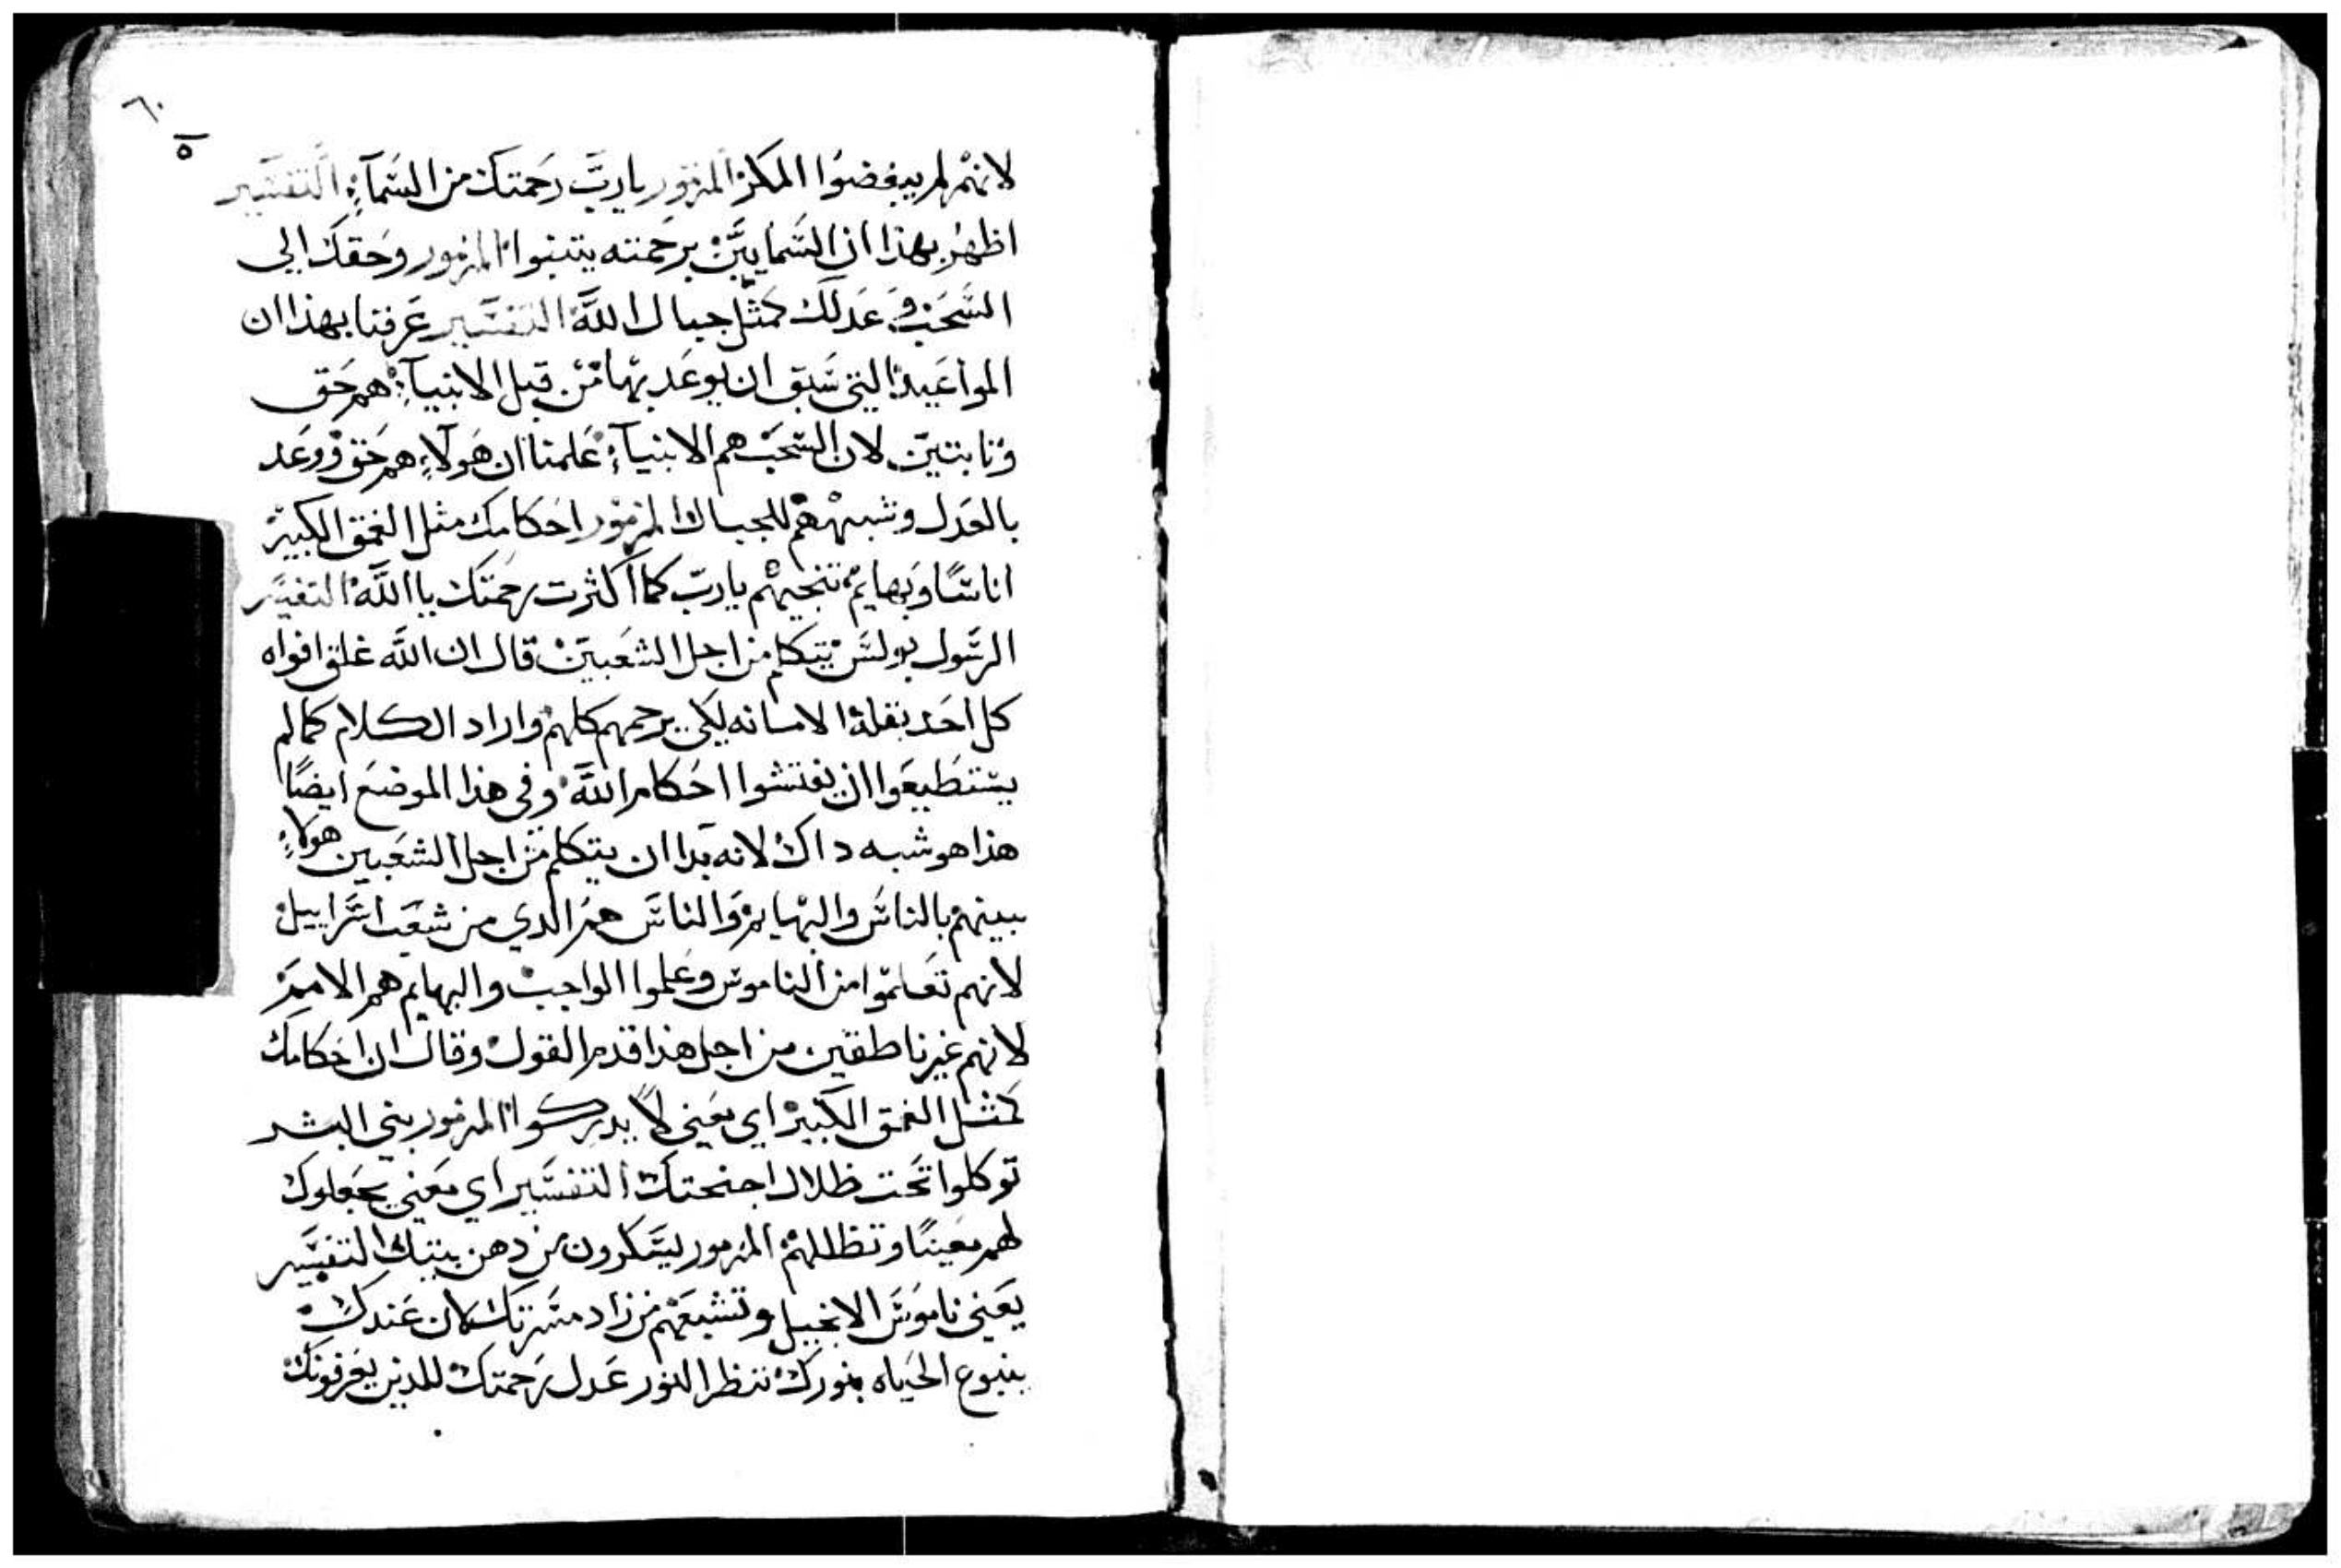 ٦٠
ō
لانهم لم يبغضوا المكر المزمور يارب رحمتك من السمآء التفسير
اظهر بهذا ان السماييين برحمته يتنبوا المزمور وحقك الي
السحب وعدلك كمثل جبال الله التفسير عرفنا بهذا ان
المواعيد التي سبق ان يوعد بها من قبل الانبيآء هم حق
وثابتين لان السحب هم الانبيآء علمنا ان هولآء هم حق ووعد
بالعدل وشبههم للجبال المزمور احكامك مثل الغمق الكبير
اناسًا وبهايم تنجيهم يارب كما اكثرت رحمتك يا الله التفسير
الرسول بولس يتكلم من اجل الشعبين قال ان الله غلق افواه
كل احد بقلة الامانه لكي يرحمهم كلهم واراد الكلام كما لم
يستطيعوا ان يفتشوا احكام الله وفي هذا الموضع ايضًا
هذا هو شبه داك لانه بدا ان يتكلم من اجل الشعبين هولاء
بينهم بالناس والبهايم والناس هم الدي من شعب اسراييل
لانهم تعلموا من الناموس وعلموا الواجب والبهايم هم الامم
لانهم غير ناطقين من اجل هذا قدم القول وقال ان احكامك
كمثل الغمق الكبير اي يعني لا يدركوا المزمور بني البشر
توكلوا تحت ظلال اجنحتك التفسير اي يعني يجعلوك
لهم معينًا وتظللهم المزمور ليسكرون من دهن بيتك التفسير
يعني ناموس الانجيل وتشبعهم من زاد مسرتك لان عندك
ينبوع الحياه بنورك ننظر النور عدل رحمتك للدين يعرفونك